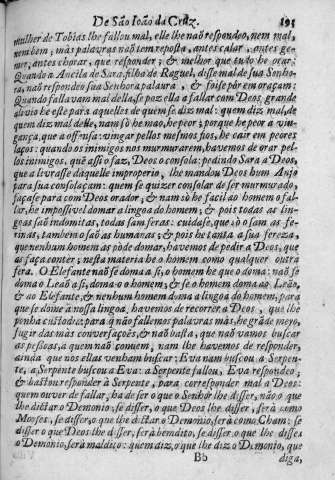 De São Ioão da Cruz. 193
mulher de Tobias lhe fallou mal, elle lhe naõ respondeo, nem mal,
nem bem; más palavras naõ tem reposta, antes calar, antes ge-
mer, antes chorar, que responder; & melhor que tudo he orar:
Quando a Ancila de Sara, filha de Raguel, disse mal de sua Senho-
ra, naõ respondeo sua Senhora palaura, & foise pór em oraçam:
Quando fallavam mal della, se poz ella a fallar com Deos, grande
alivio he este para aquelles de quem se diz mal: quem diz mal, de
quem diz mal delle, nam só he mao, he peor; porque he peor a vin-
gança, que a offensa: vingar pellos mesmos fios, he cair em peores
laços: quando os inimigos nos murmurarem, havemos de orar pel-
los inimigos, què assi o faz, Deos o consola: pedindo Sara a Deos,
que a livrasse daquelle improperio, lhe mandou Deos hum Anjo
para sua consolaçam: quem se quizer consolar de ser murmurado,
faça se para com Deos orador; & nam só he facil ao homem o fal-
lar, he impossivel domar a lingoa do homem; & pois todas as lin-
goas saõ indomitas, todas sam feras: cuidase, que só o sam as fe-
rinas, tambem o saõ as humanas; & pois he tanta a sua fereza,
que nenhum homem as póde domar, havemos de pedir a Deos, que
as faça conter; nesta materia he o homem como qualquer outra
fera. O Elefante naõ se doma a si, o homem he que o doma: naõ se
doma o Leaõ a si, doma-o o homem; & se o homem doma ao Leão,
& ao Elefante, & nenhum homem doma a lingoa do homem, para
que se dome a nossa lingoa, havemos de recorrer a Deos, que lhe
ponha custodia; para q̃ naõ fallemos palavras más, he grãde meyo,
fugir das más conversaçoẽs, & naõ basta, que naõ vamos buscar
as pessoas, a quem naõ convem, nam lhe havemos de responder,
ainda que nos ellas venham buscar: Eva nam buscou a Serpen-
te, a Serpente buscou a Eva: a Serpente fallou, Eva respondeo;
& bastou responder á Serpente, para corresponder mal a Deos:
quem ouver de fallar, ha de ser o que o Senhor lhe disser, não o que
lhe dictar o Demonio; se disser, o que Deos lhe disser, será como
Moyses, se disser, o que lhe dictar o Demonio, será como Cham: se
disser o que Deos lhe disser, será bemdito, se disser o que lhe disser
o Demonio, será maldito: quem diz, o que lhe diz o Demonio, que
Bb diga,